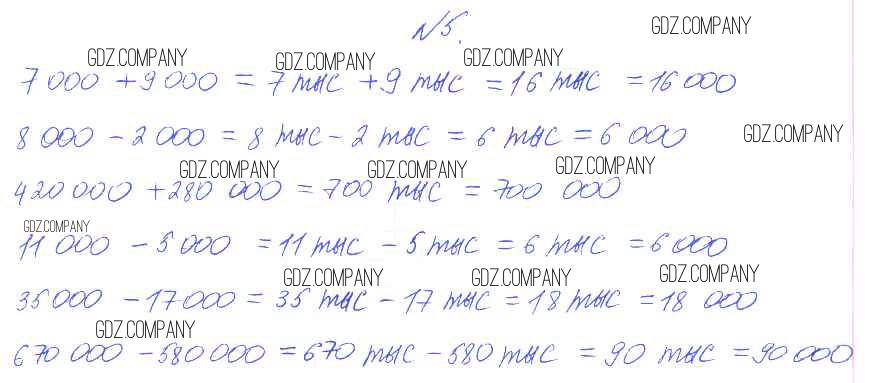 №5.
GDZ.COMPANY
GDZ.COMPANY GDZ.COMPANY GDZ.COMPANY
7 000 + 9 000 = 7 тыс + 9 тыс = 16 тыс = 16 000
8 000 - 2 000 = 8 тыс - 2 тыс = 6 тыс = 6 000
GDZ.COMPANY
GDZ.COMPANY GDZ.COMPANY GDZ.COMPANY
420 000 + 280 000 = 700 тыс = 700 000
GDZ.COMPANY
11 000 - 5 000 = 11 тыс - 5 тыс = 6 тыс = 6 000
GDZ.COMPANY GDZ.COMPANY GDZ.COMPANY
35 000 - 17 000 = 35 тыс - 17 тыс = 18 тыс = 18 000
GDZ.COMPANY
670 000 - 580 000 = 670 тыс - 580 тыс = 90 тыс = 90 000